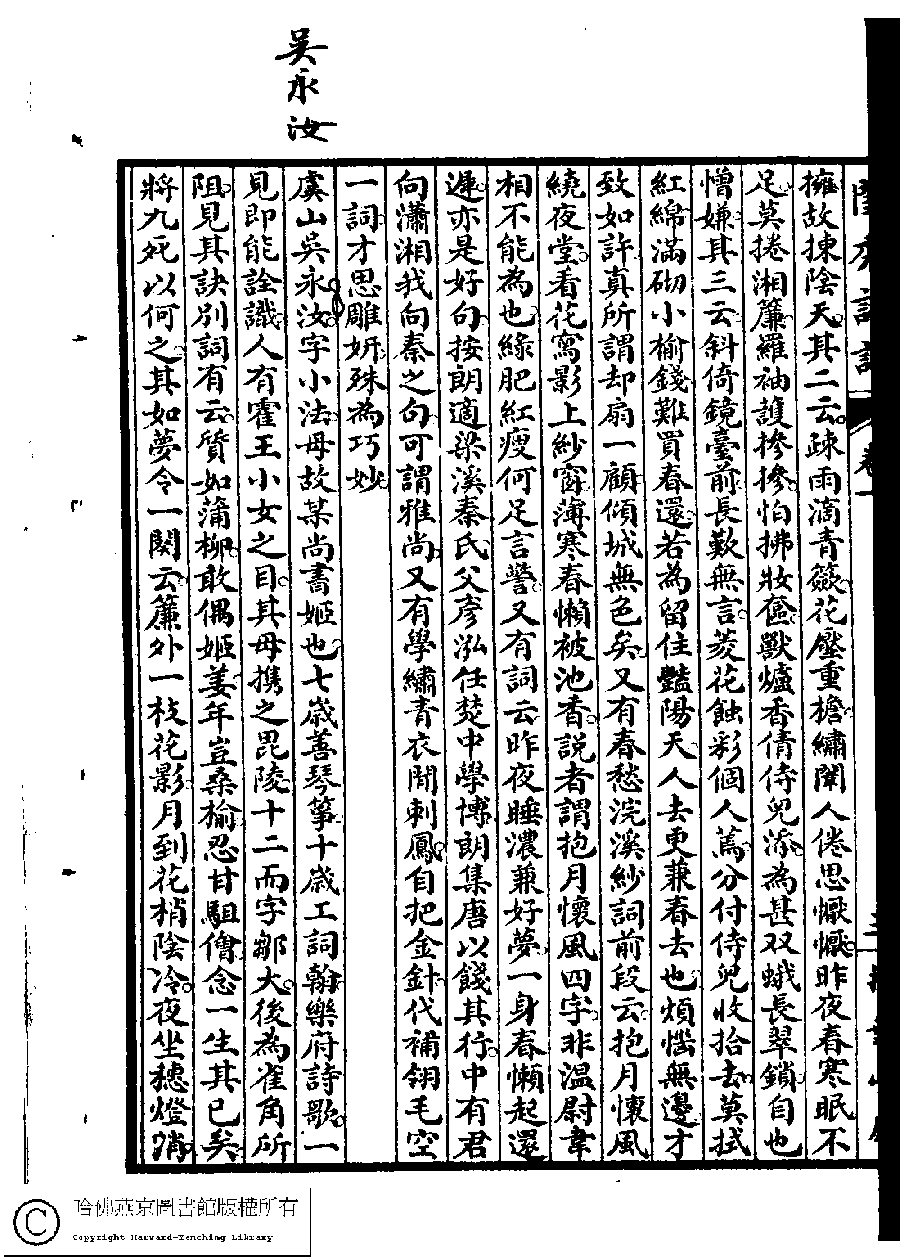 吳永汝
擁故揀陰天其二云疎雨滴青簽花壓重檐繡闈人倦思懨懨昨夜春寒眠不
足莫捲湘簾羅袖護摻摻怕拂妝奩獸爐香倩侍兒添為甚双蛾長翠鎖自也
憎嫌其三云斜倚鏡臺前長歎無言菱花蝕彩個人蔫分付侍兒收拾去莫拭
紅綿滿砌小榆錢難買春還若為留住豔陽天人去更兼春去也煩惱無邊才
致如許真所謂却扇一顧傾城無色矣又有春愁浣溪紗詞前段云抱月懷風
繞夜堂看花寫影上紗窗薄寒春懶被池香説者謂抱月懷風四字非溫尉韋
相不能為也綠肥紅瘦何足言警又有詞云昨夜睡濃兼好夢一身春懶起還
遲亦是好句按朗適梁溪秦氏父彥泓任楚中學博朗集唐以餞其行中有君
向瀟湘我向秦之句可謂雅尚又有學繡青衣閒刺鳳自把金針代補翎毛空
一詞才思雕妍殊為巧妙
虞山吳永汝字小法母故某尚書姬也七歲善琴箏十歲工詞翰樂府詩歌一
見即能詮識人有霍王小女之目其母携之毘陵十二而字鄒大後為雀角所
阻見其訣別詞有云質如蒲柳敢偶姬姜年豈桑榆忍甘駔儈念一生其已矣
將九死以何之其如夢令一闋云簾外一枝花影月到花梢陰冷夜坐穗燈消
哈佛燕京圖書館版權所有
Copyright Harvard-Yenching Library